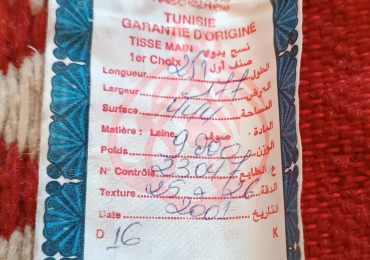 TUNISIE
GARANTIE D'ORIGINE
TISSE MAIN نسج يدوي
1er Choix صنف أول
Longueur الطول
Largeur 177 العرض
Surface 444 المساحة
Matière : Laine صوف المادة
Poids 9 800 الوزن
N° Contrôle 23047 ع الطابع
Texture 25 x 26 الدقة
Date 2001 التاريخ
D 16 K